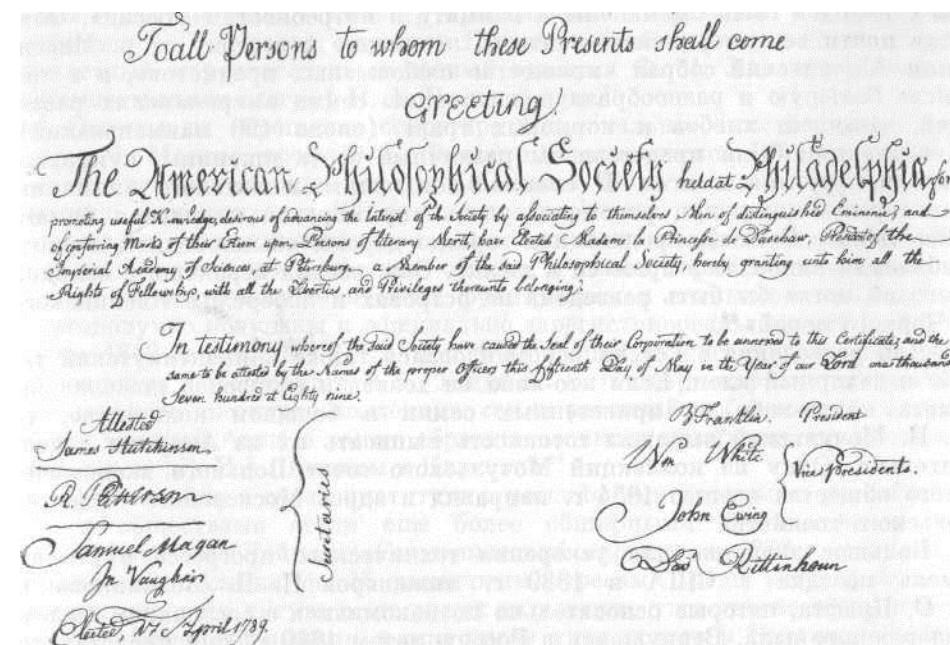 To all Persons to whom these Presents shall come
Greeting
The American Philosophical Society held at Philadelphia for
promoting useful Knowledge, desirous of advancing the Interest of the Society by associating to themselves Men of distinguished Eminence, and
of conferring Marks of their Esteem upon Persons of literary Merit, have Elected Madame la Princesse de Daschaw, President of the
Imperial Academy of Sciences, at Petersburg a Member of the said Philosophical Society, hereby granting unto him all the
Rights of Fellowship, with all the Liberties, and Privileges thereunto belonging.
In testimony whereof the said Society have caused the Seal of their Corporation to be annexed to this Certificate, and the
same to be attested by the Names of the proper Officers this fifteenth Day of May in the Year of our Lord one thousand
Seven hundred et Eighty nine.
Attested
James Hutchinson
R. Patterson
Samuel Magaw
Jn. Vaughan
Secretaries
Elected, April 1789.
B Franklin, President
Wm White
Vice Presidents.
John Ewing
Dav Rittenhouse